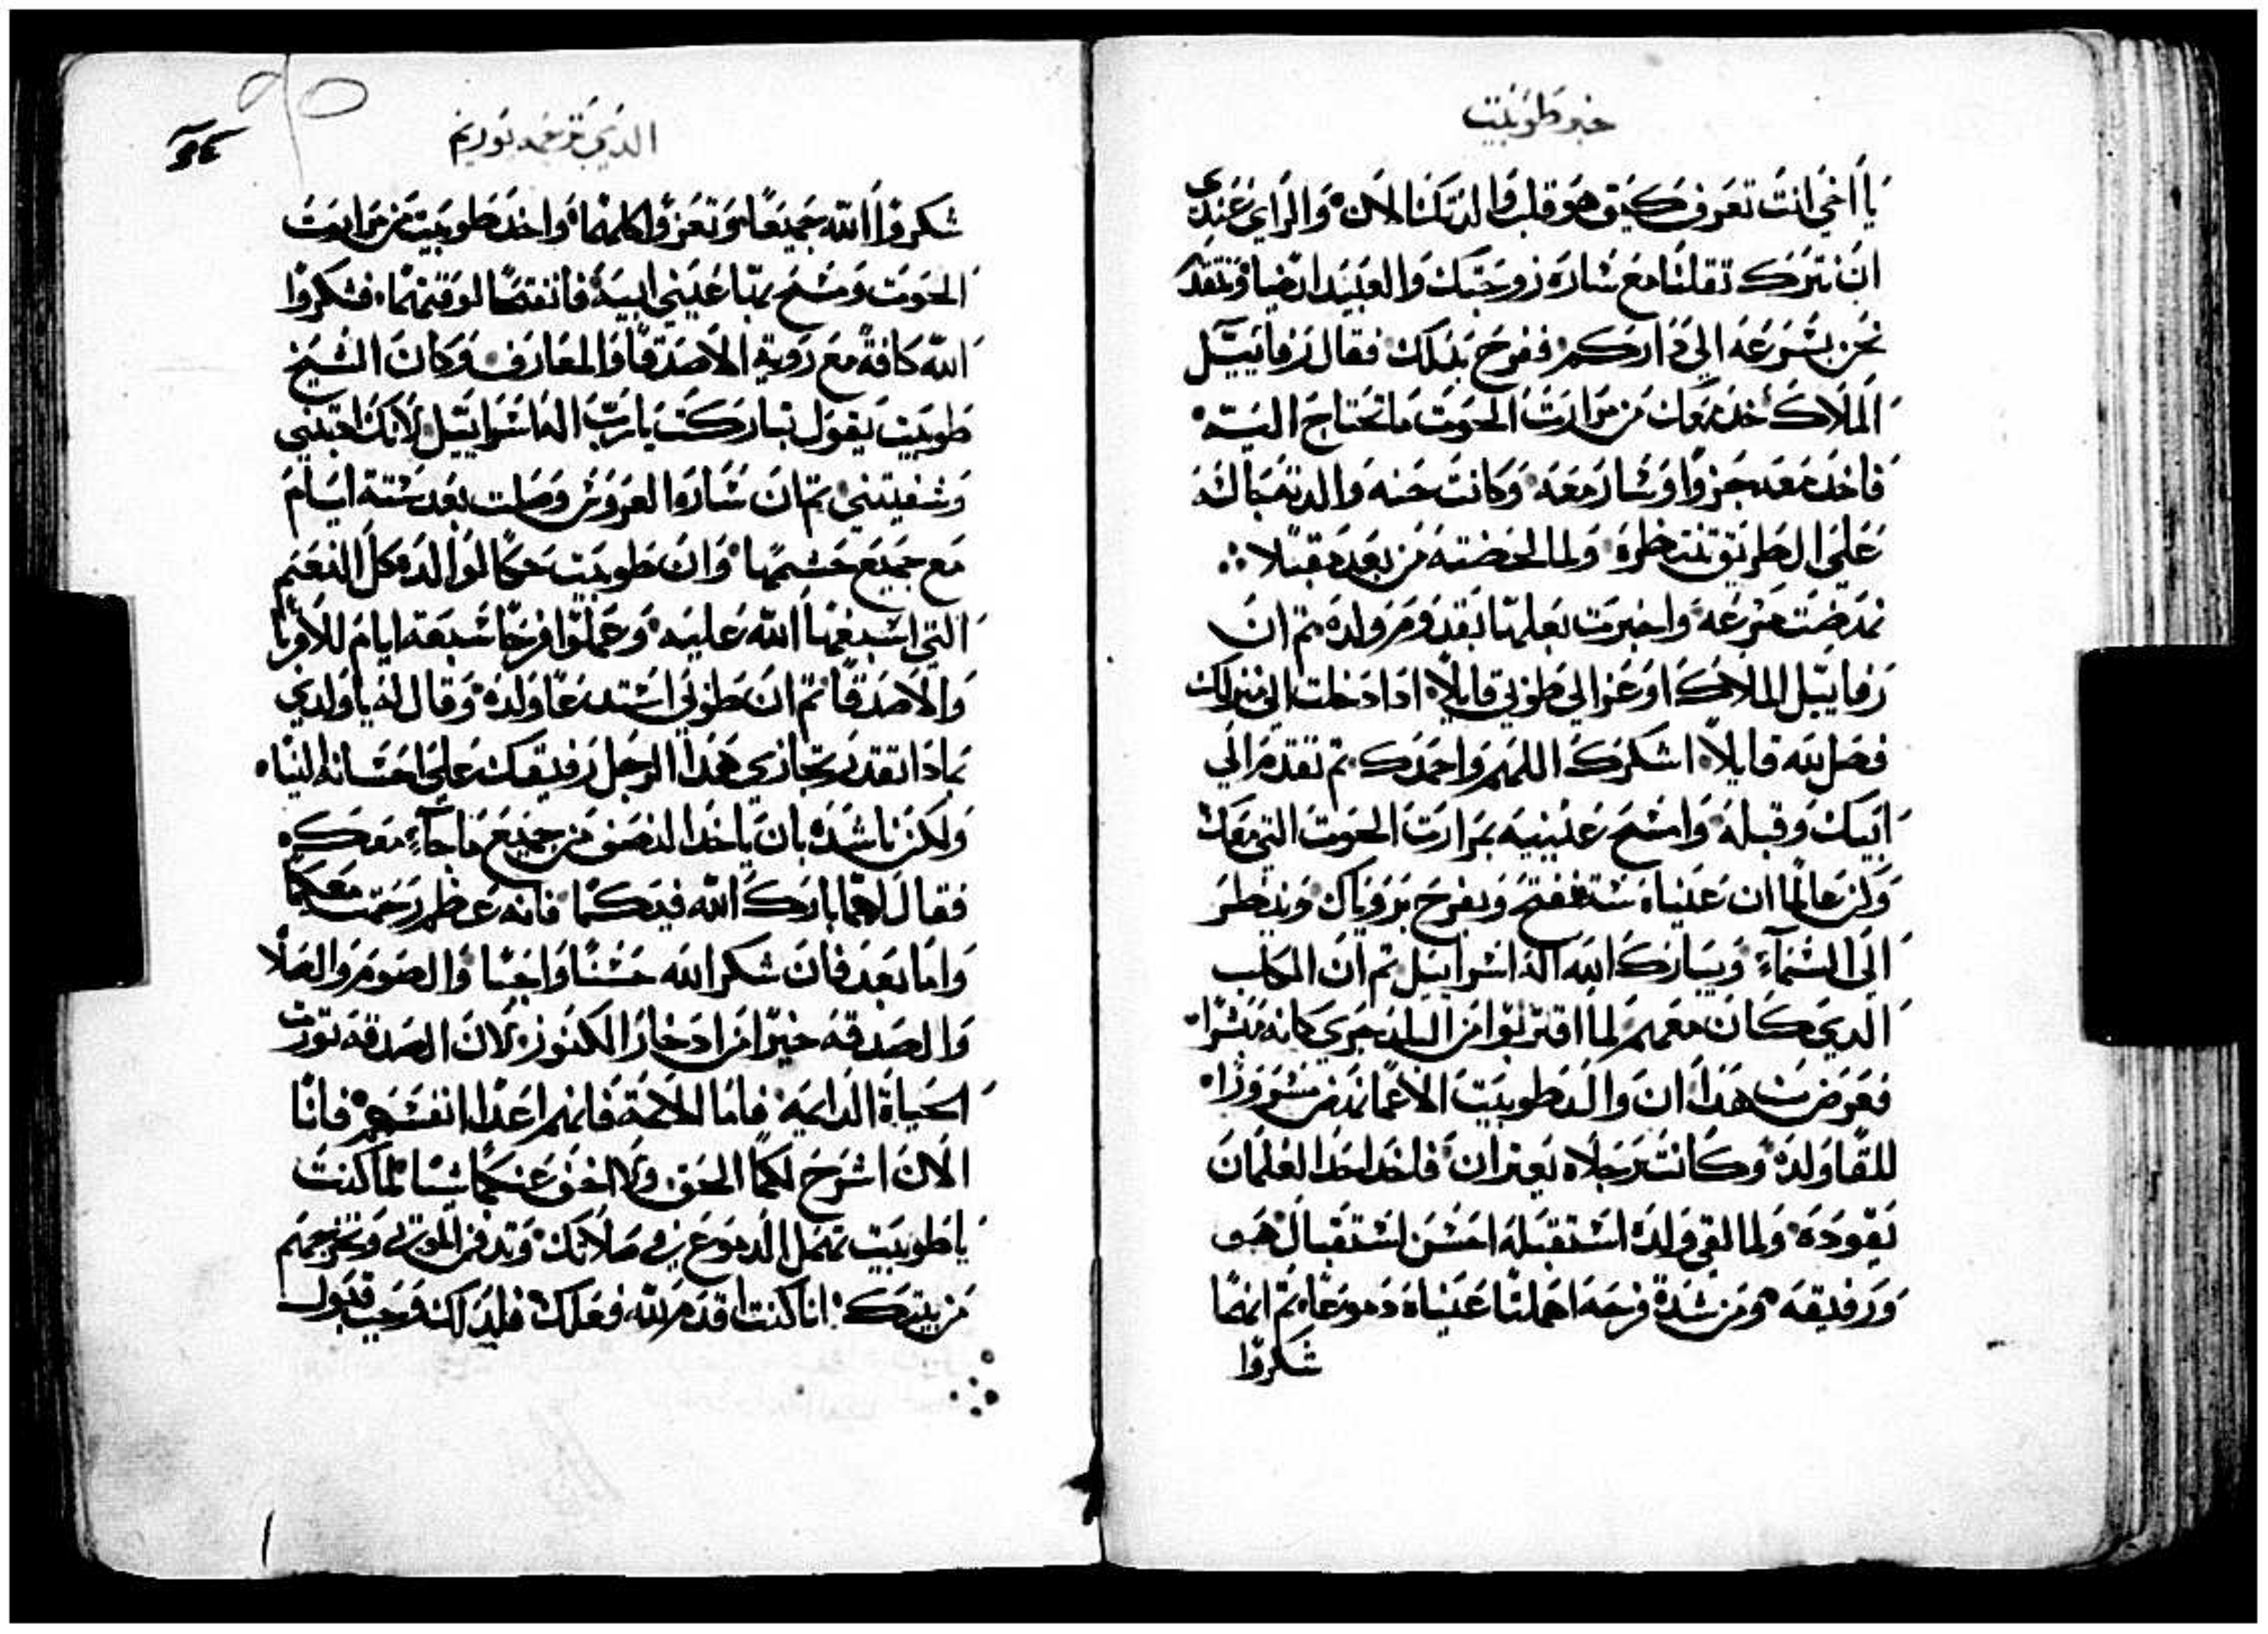 خبر طوبيت
يا اخي انت تعرف كيف هو قلب والديك لنا الان والراي عندي
ان نترك ثقلنا مع ساره زوجتك والعبيد ايضا ونتقدم
نحن بسرعه الي داركم ففرح بذلك فقال رفاييل
الملاك خد معك من مرارت الحوت ما تحتاج اليه
فاخد معه جزوا وسار معه وكانت حنه والدته جالسه
علي الطريق تنتظره ولما لحضته من بعد مقبلا
نهضت مسرعه واخبرت بعلها بقدوم ولده تم ان
رفاييل الملاك اوعز الي طوبي قايلا ادا دخلت الي منزلك
فصل لله قايلا اشكرك اللهم واحمدك تم تقدم الي
ابيك وقبله وامسح عينيه بمرارت الحوت التي معك
وكن عالما ان عيناه ستنفتح ويفرح برويتك وينظر
الي السماء ويبارك الله اله اسراييل تم ان الكلب
الدي كان معهم لما اقتربوا من البلد جري كانه مبشرا
فعرض هدا ان والد طوبيت الاعما نهض مسرورا
للقا ولده وكانت رجلاه يعتران فاخد احد الغلمان
يقوده ولما لقي ولده استقبله احسن استقبال هو
ورفيقه ومن شدة فرحه اهملتا عيناه دموعا تم انهما
شكروا
الدي ترجمه توريم
شكروا الله جميعا وتعزوا كلهما واخد طوبيت من مرارت
الحوت ومسح بها عيني ابيه فانفتحا لوقتهما فشكروا
الله كافة مع روية الاصدقا والمعارف وكان الشيخ
طوبيت يقول تباركت يا رب اله اسراييل لانك اجبتني
وشفيتني تم ان ساره العروس وصلت بعد ستة ايام
مع جميع حشمها وان طوبيت حكا لوالده كل النعم
التي اسبغها الله عليه وعملوا فرحا سبعة ايام للاقربا
والاصدقا تم ان طوبي استدعا ولده وقال له يا ولدي
بمادا نقدر نجازي هدا الرجل رفيقك علي احسانه الينا
ولكن ناشده بان ياخد النصف من جميع ما جاء معك
فقال لهما بارك الله فيكما فانه عظم رحمته معكما
واما بعد فان شكر الله حسنا واجبا والصوم والصلا
والصدقه خيرا من ادخار الكنوز لان الصدقه تورت
الحياة الدايمه فاما اللاتمة فانهم اعدا انفسهم فانا
الان اشرح لكما الحق ولا اخفي عنكما شيا لما كنت
يا طوبيت تهمل الدموع في صلاتك وتدفن الموتي وتخرجهم
من بيتك انا كنت اقدم لله فعلك فلدلك وجب قبول